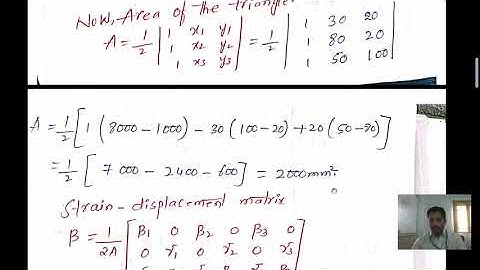 Now, Area of the triangle
A = 1/2 | 1 x1 y1 | = 1/2 | 1 30 20 |
| 1 x2 y2 | | 1 80 20 |
| 1 x3 y3 | | 1 50 100 |
A = 1/2 [ 1 (8000 - 1000) - 30 (100 - 20) + 20 (50 - 80) ]
= 1/2 [ 7000 - 2400 - 600 ] = 2000 mm²
Strain - displacement matrix
B = 1/2A [ β1 0 β2 0 β3 0
0 γ1 0 γ2 0 γ3